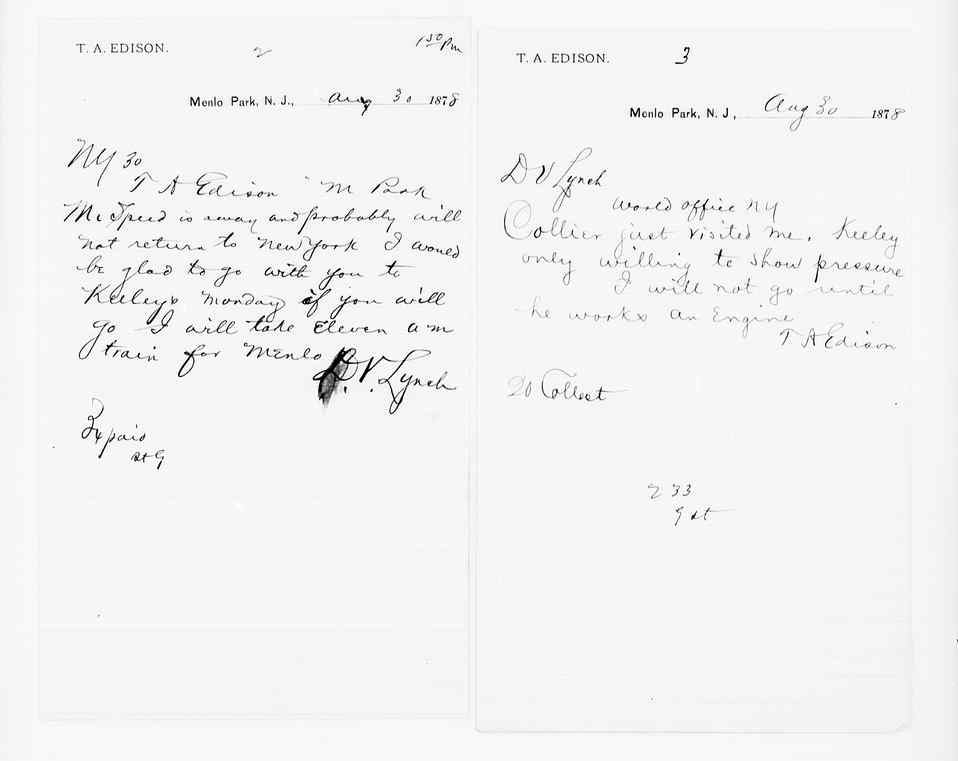 T. A. EDISON.
2
1 30 Pm
Menlo Park, N. J., Aug 30 1878
NY 30
T A Edison M Park
Mr Speed is away and probably will
not return to New York I would
be glad to go with you to
Keeleys Monday if you will
go I will take Eleven a m
train for Menlo
D. V. Lynch
paid
T. A. EDISON.
3
Menlo Park, N. J., Aug 30 1878
D V Lynch
World office NY
Collier just visited me. Keeley
only willing to show pressure
I will not go until
he works an Engine
T A Edison
20 Collect
2 33